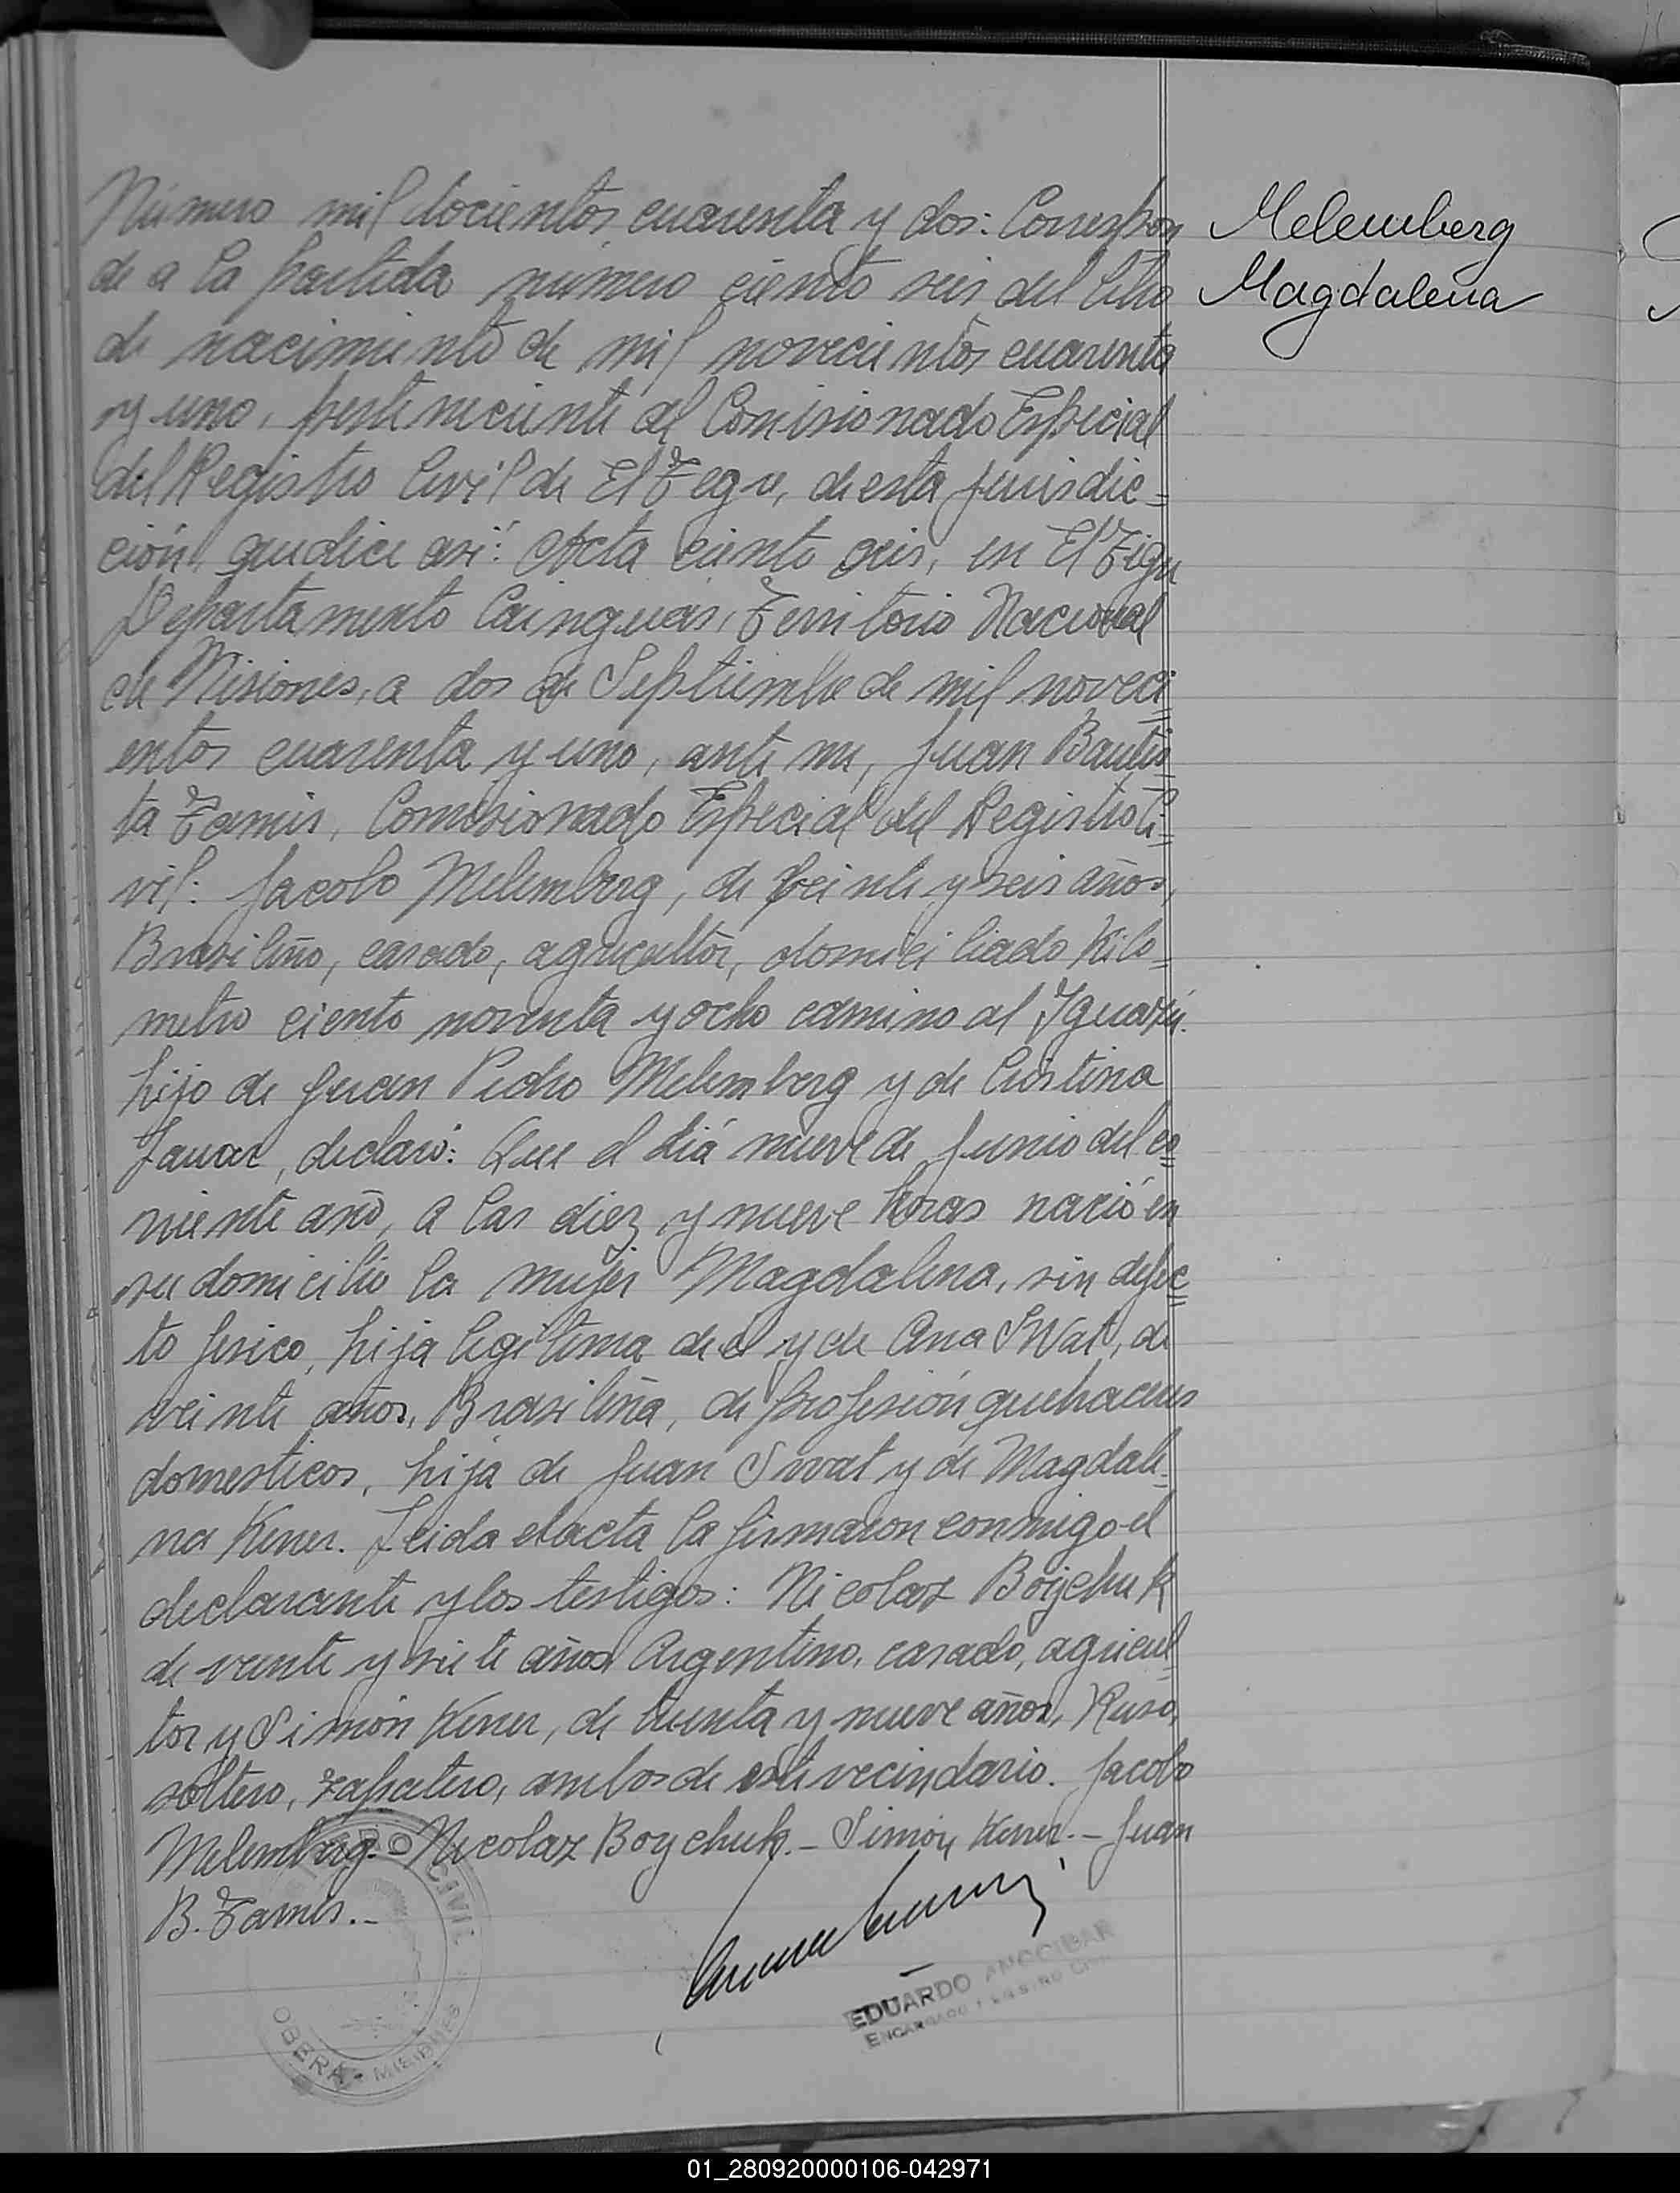 Número mil docientos cuarenta y dos: Correspon
de a la partida numero ciento seis del libro
de nacimiento de mil novecientos cuarenta
y uno, perteneciente al Comisionado Especial
del Registro Civil de El Tegu, de esta jurisdic=
ción, que dice asi: Acta ciento seis, en El Tigu
Departamento Cainguas, Territorio Nacional
de Misiones, a dos de Septiembre de mil noveci=
entos cuarenta y uno, ante mi, Juan Bautis
ta Tamis, Comisionado Especial del Registro Ci=
vil: Jacobo Melemberg, de veinte y seis años,
Brasileño, casado, agricultor, domiciliado Kilo=
metro ciento noventa y ocho camino al Iguazú.
hijo de Juan Pedro Melemberg y de Cristina
declaró: Que el día nueve de Junio del co
rriente año, a las diez y nueve horas nació en
su domicilio la mujer Magdalena, sin defec=
to fisico, hija legitima de el y de Ana SWat, de
veinte años, Brasileña, de profesión quehaceres
domesticos, hija de Juan Swat y de Magdale-
na Kener. Leida el acta la firmaron conmigo el
declarante y los testigos: Nicolaz Boychuk
de veinte y siete años Argentino, casado, agricul=
tor y Simón Kener, de treinta y nueve años, Ruso,
soltero, zapatero, ambos de este vecindario. Jacobo
Melemberg.- Nicolaz Boychuk.- Simón Kener.- Juan
B. Tamis.-
Melemberg
Magdalena
CIVIL
OBERÁ - MISIONES
EDUARDO ANCCIBAR
ENCARGADO REGISTRO CIVIL
01_280920000106-042971